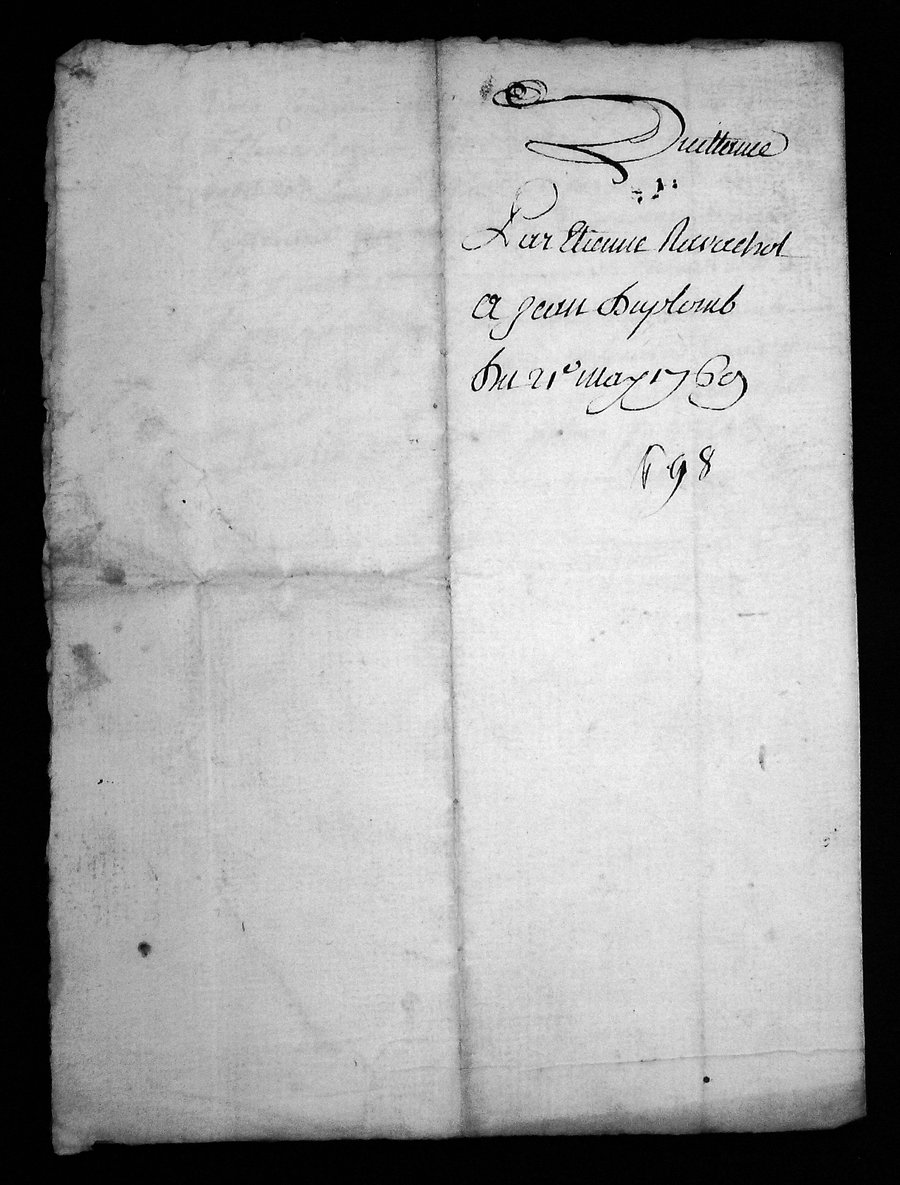 Quittance
Par Etienne Ravachol
a jean Duplomb
Du 21e may 1769
98